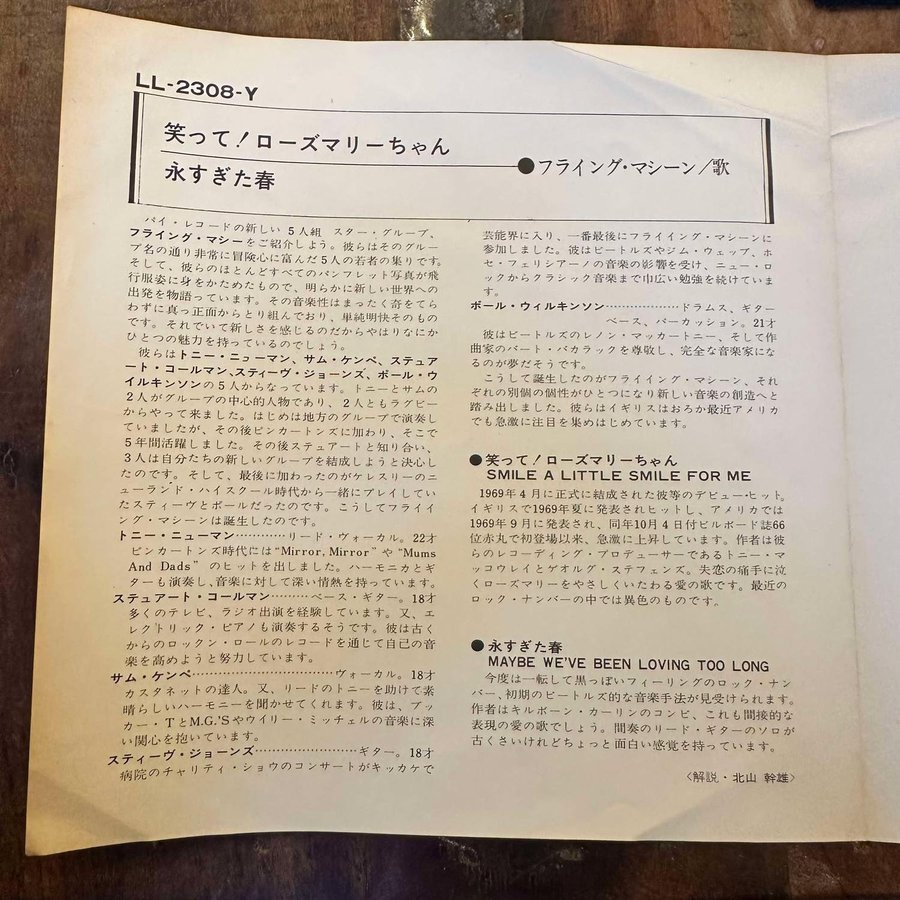 LL-2308-Y
笑って!ローズマリーちゃん
永すぎた春
●フライング・マシーン/歌
パイ・レコードの新しい5人組 スター・グループ、
フライング・マシーをご紹介しよう。彼らはそのグルー
プ名の通り非常に冒険心に富んだ5人の若者の集りです。
そして、彼らのほとんどすべてのパンフレット写真が飛
行服姿に身をかためたもので、明らかに新しい世界への
出発を物語っています。その音楽性はまったく奇をてら
わずに真っ正面からとり組んでおり、単純明快そのもの
です。それでいて新しさを感じるのだからやはりなにか
ひとつの魅力を持っているのでしょう。
彼らはトニー・ニューマン、サム・ケンペ、ステュア
ート・コールマン、スティーヴ・ジョーンズ、ポール・ウ
イルキンソンの5人からなっています。トニーとサムの
2人がグループの中心的人物であり、2人ともラグビー
からやって来ました。はじめは地方のグループで演奏し
ていましたが、その後ピンカートンズに加わり、そこで
5年間活躍しました。その後ステュアートと知り合い、
3人は自分たちの新しいグループを結成しようと決心し
たのです。そして、最後に加わったのがケレスリーのニ
ューランド・ハイスクール時代から一緒にプレイしてい
たスティーヴとポールだったのです。こうしてフライイ
ング・マシーンは誕生したのです。
トニー・ニューマン…………リード・ヴォーカル。22才
ピンカートンズ時代には"Mirror, Mirror"や"Mums
And Dads" のヒットを出しました。ハーモニカとギ
ターも演奏し、音楽に対して深い情熱を持っています。
ステュアート・コールマン………ベース・ギター。18才
多くのテレビ、ラジオ出演を経験しています。又、エ
レクトリック・ピアノも演奏するそうです。彼は古く
からのロックン・ロールのレコードを通じて自己の音
楽を高めようと努力しています。
サム・ケンペ………………………ヴォーカル。18才
カスタネットの達人。又、リードのトニーを助けて素
晴らしいハーモニーを聞かせてくれます。彼は、ブッ
カー・TとM.G.'Sやウイリー・ミッチェルの音楽に深
い関心を抱いています。
スティーヴ・ジョーンズ………………ギター。18才
病院のチャリティ・ショウのコンサートがキッカケで
芸能界に入り、一番最後にフライイング・マシーンに
参加しました。彼はビートルズやジム・ウェッブ、ホ
セ・フェリシアーノの音楽の影響を受け、ニュー・ロ
ックからクラシック音楽まで巾広い勉強を続けていま
す。
ポール・ウィルキンソン………………ドラムス、ギター
ベース、パーカッション。21才
彼はビートルズのレノン・マッカートニー、そして作
曲家のバート・バカラックを尊敬し、完全な音楽家にな
るのが夢だそうです。
こうして誕生したのがフライイング・マシーン、それ
ぞれの別個の個性がひとつになり新しい音楽の創造へと
踏み出しました。彼らはイギリスはおろか最近アメリカ
でも急激に注目を集めはじめています。
●笑って!ローズマリーちゃん
SMILE A LITTLE SMILE FOR ME
1969年4月に正式に結成された彼等のデビュー・ヒット。
イギリスで1969年夏に発表されヒットし、アメリカでは
1969年9月に発表され、同年10月4日付ビルボード誌66
位赤丸で初登場以来、急激に上昇しています。作者は彼
らのレコーディング・プロデューサーであるトニー・マ
ッコウレイとゲオルグ・ステフェンズ。失恋の痛手に泣
くローズマリーをやさしくいたわる愛の歌です。最近の
ロック・ナンバーの中では異色のものです。
●永すぎた春
MAYBE WE'VE BEEN LOVING TOO LONG
今度は一転して黒っぽいフィーリングのロック・ナン
バー、初期のビートルズ的な音楽手法が見受けられます。
作者はキルボーン・カーリンのコンビ、これも間接的な
表現の愛の歌でしょう。間奏のリード・ギターのソロが
古くさいけれどちょっと面白い感覚を持っています。
〈解説・北山 幹雄〉